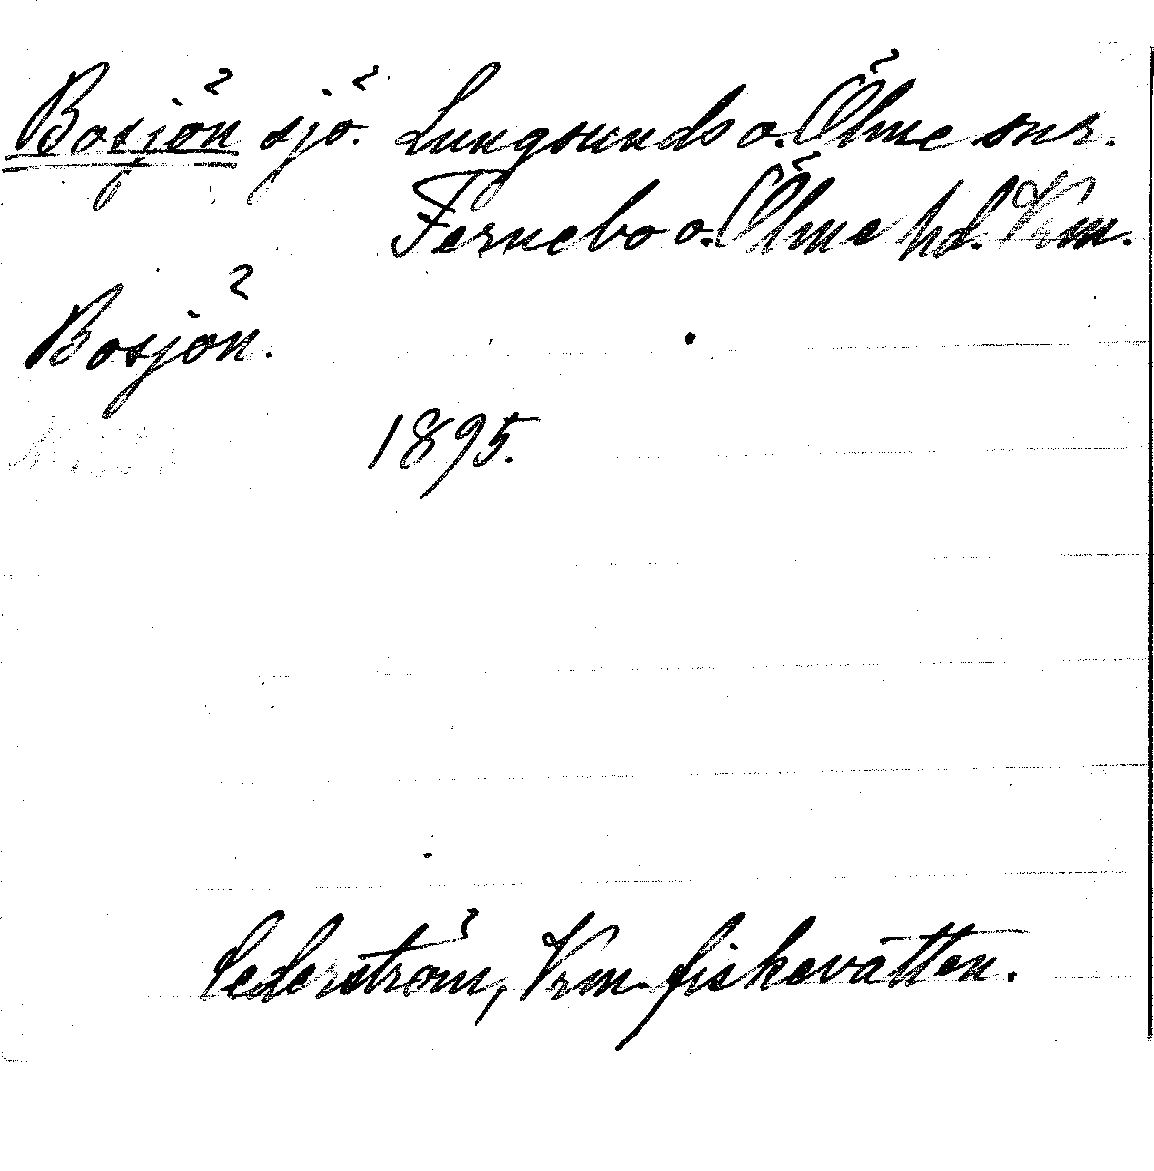 Bosjön sjö. Lungsunds o. Ölme snr.
Fernebo o. Ölme hd. Vrm.
Bosjön.
1895.
Cederström, Vrm. fiskevatten.